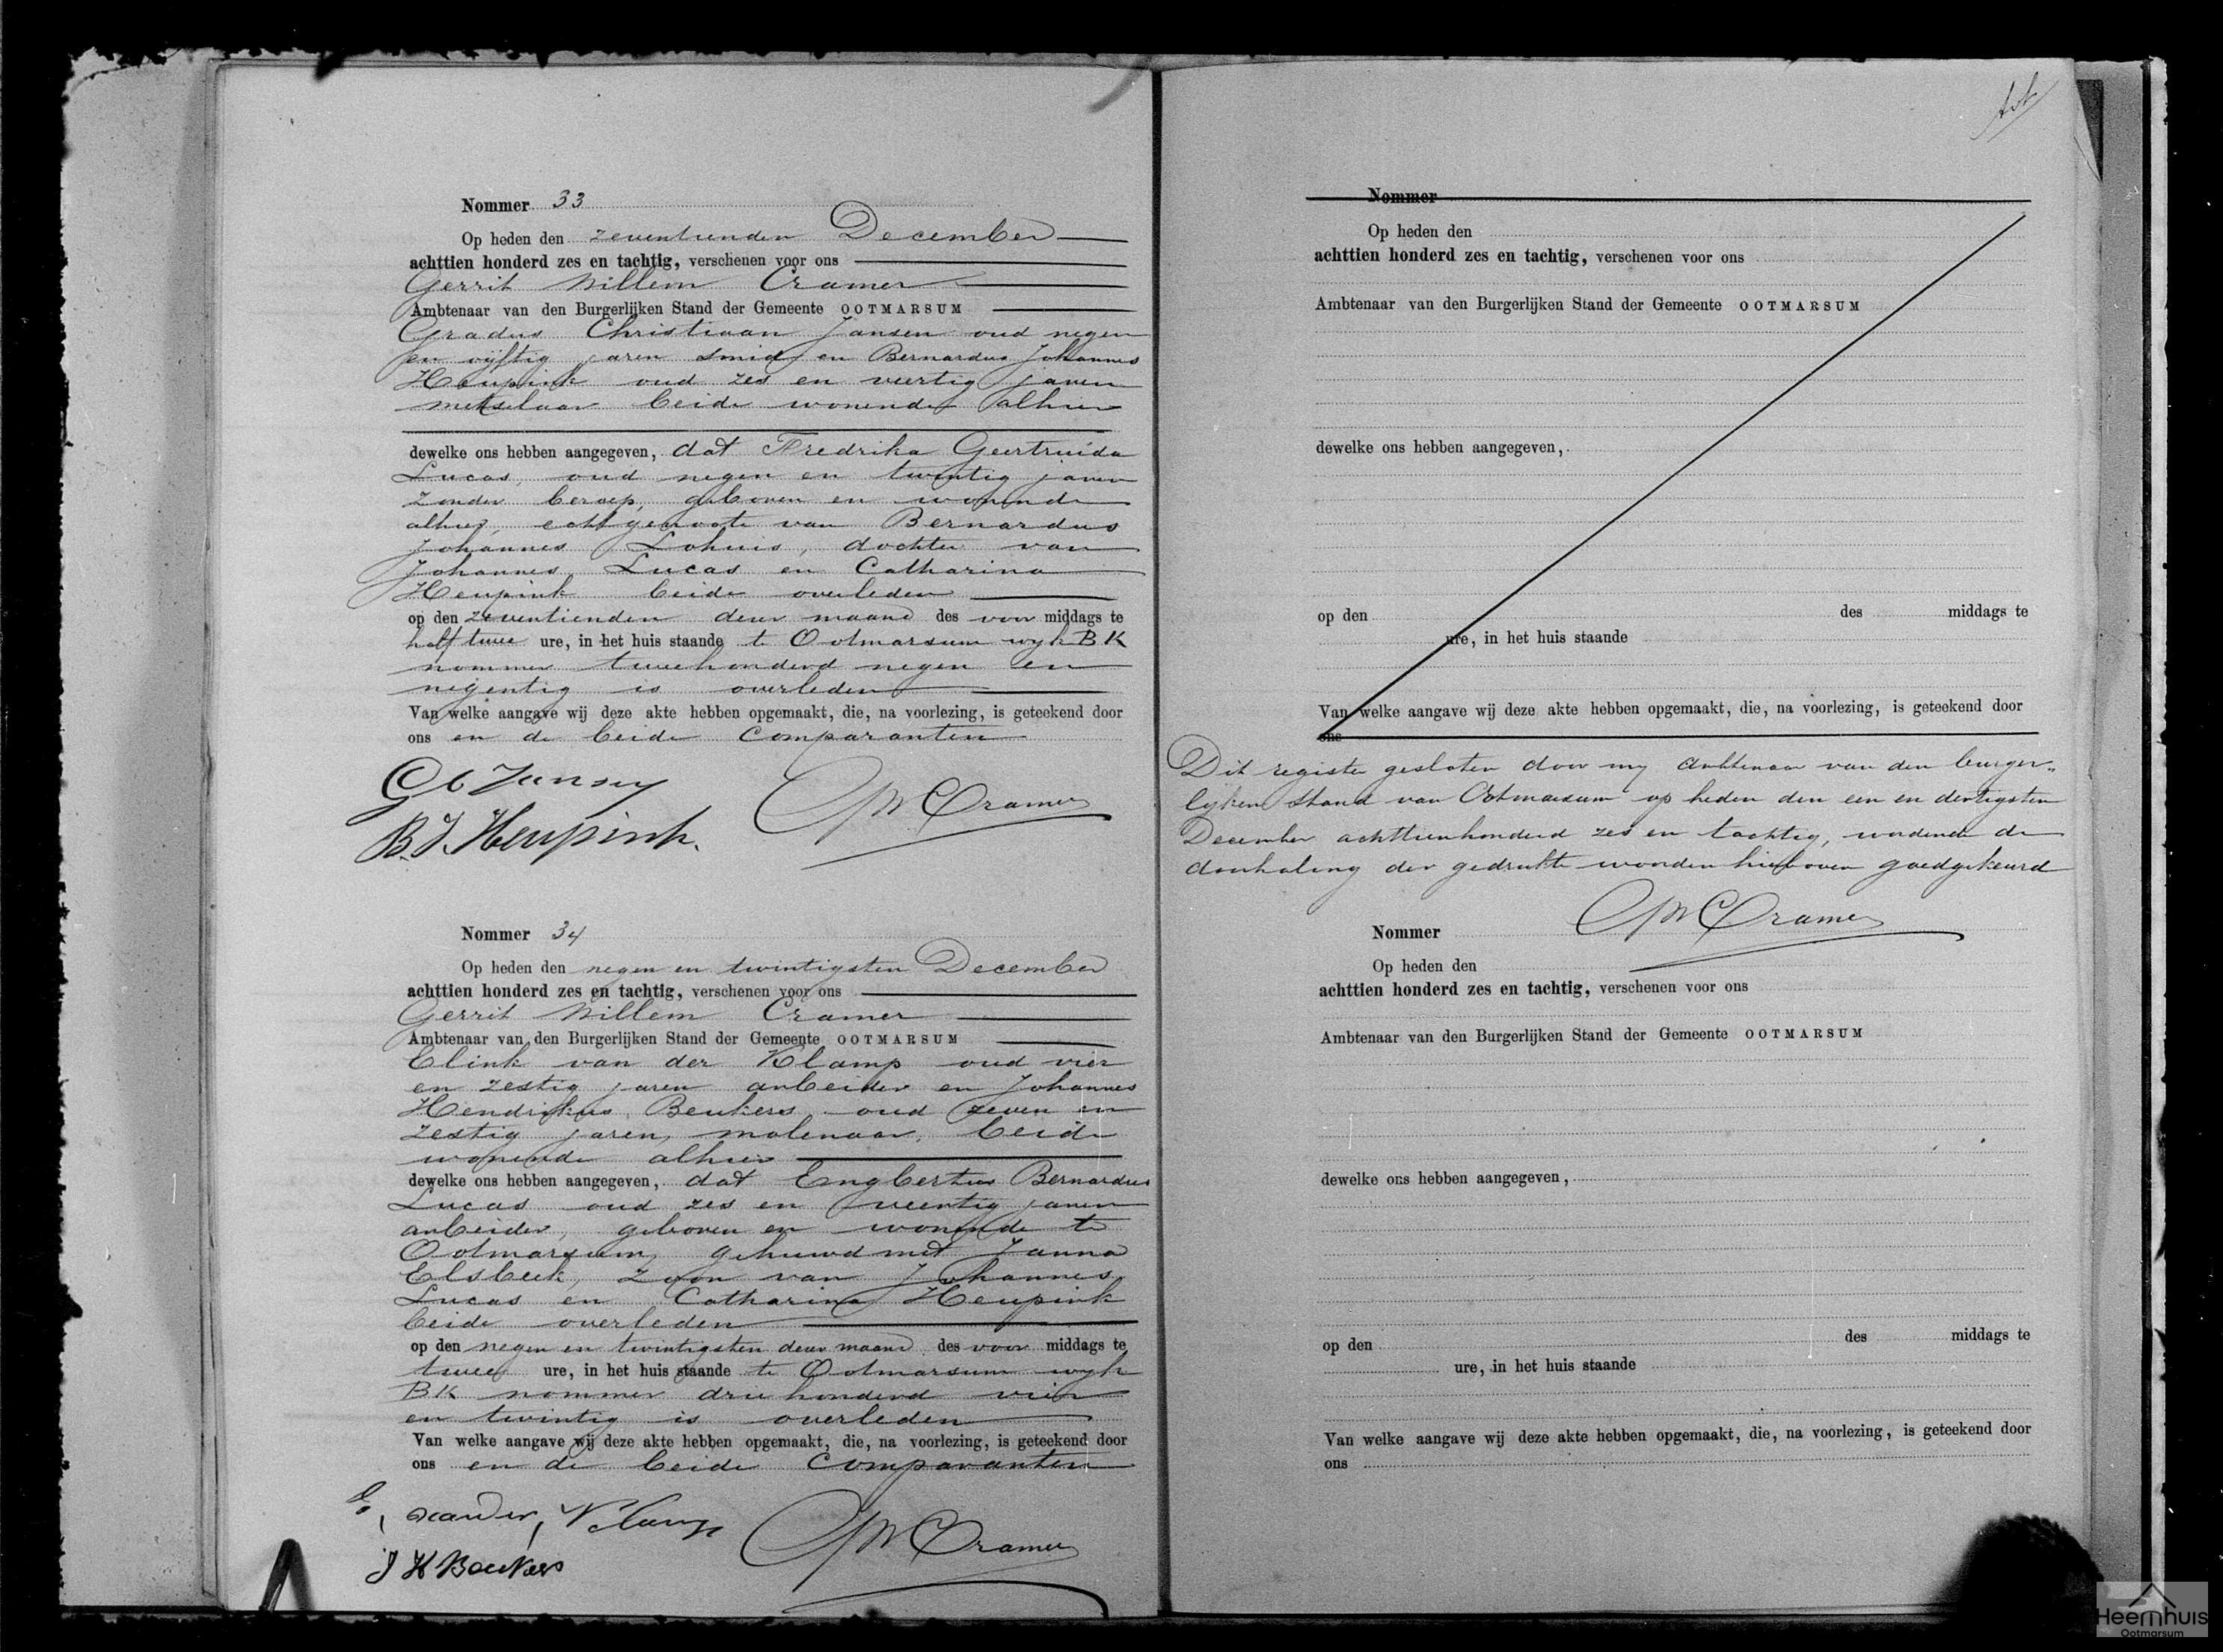 Nommer 33
Op heden den zeventienden December
achttien honderd zes en tachtig, verschenen voor ons
Gerrit Willem Cramer
Ambtenaar van den Burgerlijken Stand der Gemeente OOTMARSUM
Gradus Christiaan Jansen oud negen
en vijftig jaren smid en Bernardus Johannes
Heupink oud zes en veertig jaren
metselaar beide wonende alhier
dewelke ons hebben aangegeven, dat Fredrika Geertruida
Lucas, oud negen en twintig jaren
zonder beroep, geboren en wonende
alhier, echtgenoote van Bernardus
Johannes Lohuis, dochter van
Johannes Lucas en Catharina
Heupink beide overleden
op den zeventienden dezer maand des voor middags te
half twee ure, in het huis staande te Ootmarsum wyk BK
nommer tweehonderd negen en
negentig is overleden
Van welke aangave wij deze akte hebben opgemaakt, die, na voorlezing, is geteekend door
ons en de beide Comparanten
GC Jansen
GW Cramer
B.J. Heupink.
Nommer 34
Op heden den negen en twintigsten December
achttien honderd zes en tachtig, verschenen voor ons
Gerrit Willem Cramer
Ambtenaar van den Burgerlijken Stand der Gemeente OOTMARSUM
Elink van der Klamp oud vier
en zestig jaren arbeider en Johannes
Hendrikus Beukers oud zeven en
zestig jaren, molenaar, beide
wonende alhier
dewelke ons hebben aangegeven, dat Engbertus Bernardus
Lucas oud zes en veertig jaren
arbeider, geboren en wonende te
Ootmarsum, gehuwd met Janna
Elsbeek, zoon van Johannes
Lucas en Catharina Heupink
beide overleden
op den negen en twintigsten dezer maand des voor middags te
twee ure, in het huis staande te Ootmarsum wyk
BK nommer driehonderd vier
en twintig is overleden
Van welke aangave wij deze akte hebben opgemaakt, die, na voorlezing, is geteekend door
ons en de beide Comparanten
GW Cramer
J H Beukers
Nommer
Op heden den
achttien honderd zes en tachtig, verschenen voor ons
Ambtenaar van den Burgerlijken Stand der Gemeente OOTMARSUM
dewelke ons hebben aangegeven,
op den des middags te
ure, in het huis staande
Van welke aangave wij deze akte hebben opgemaakt, die, na voorlezing, is geteekend door
ons
Dit register gesloten door my Ambtenaar van den burger„
lijken stand van Ootmarsum op heden den een en dertigsten
December achttienhonderd zes en tachtig, wordende de
doorhaling der gedrukte woorden hierboven goedgekeurd
GW Cramer
Nommer
Op heden den
achttien honderd zes en tachtig, verschenen voor ons
Ambtenaar van den Burgerlijken Stand der Gemeente OOTMARSUM
dewelke ons hebben aangegeven,
op den des middags te
ure, in het huis staande
Van welke aangave wij deze akte hebben opgemaakt, die, na voorlezing, is geteekend door
ons
Heemhuis
Ootmarsum